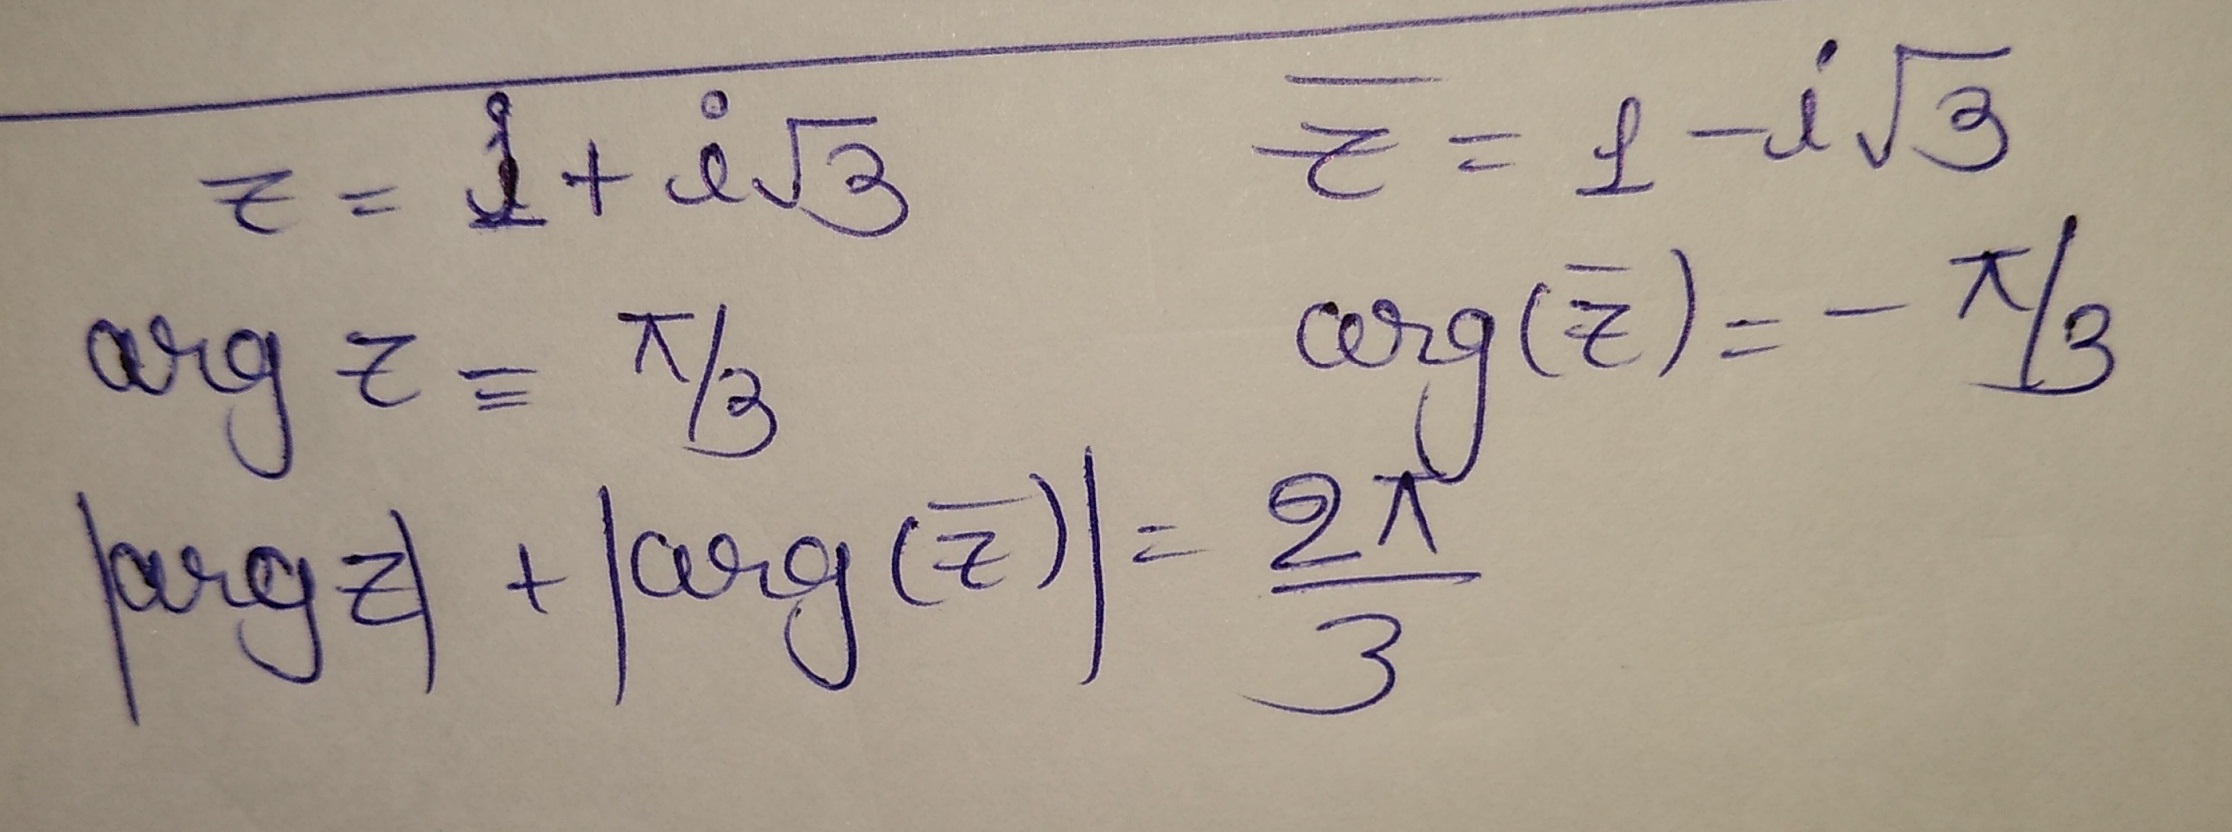 z = 1 + i√3    z̅ = 1 - i√3
arg z = π/3    arg(z̅) = - π/3
|arg z| + |arg(z̅)| = 2π/3